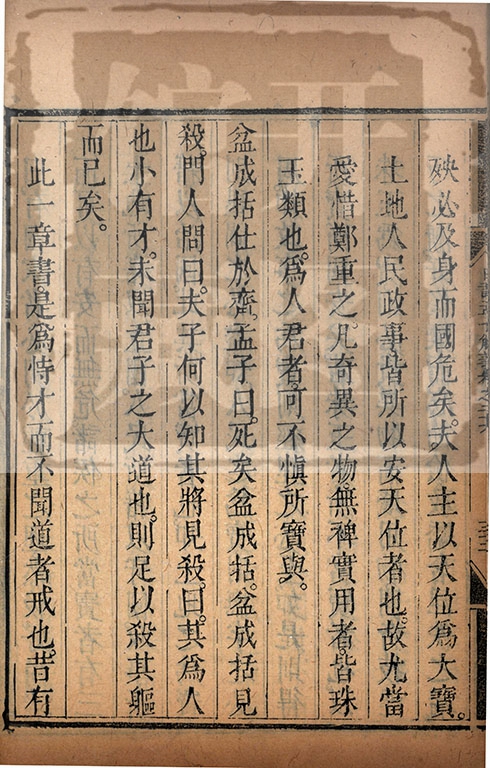 殃必及身而國危矣。夫人主以天位爲大寶。
土地人民政事皆所以安天位者也。故尤當
愛惜鄭重之。凡奇異之物。無裨實用者。皆珠
玉類也。爲人君者。可不愼所寶與。
盆成括仕於齊。孟子曰。死矣盆成括。盆成括見
殺。門人問曰。夫子何以知其將見殺。曰。其爲人
也小有才。未聞君子之大道也。則足以殺其軀
而已矣。
此一章書。是爲恃才而不聞道者戒也。昔有